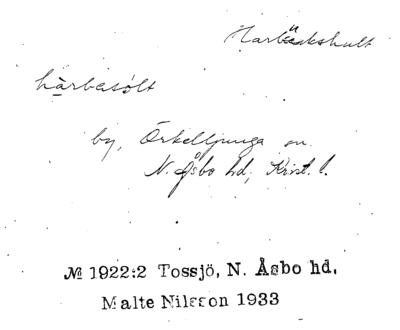 Harbäckshult
hàrbasólt
by, Örkelljunga sn.
N. Åsbo hd, Krist. l.
№ 1922:2 Tossjö, N. Åsbo hd.
Malte Nilsson 1933